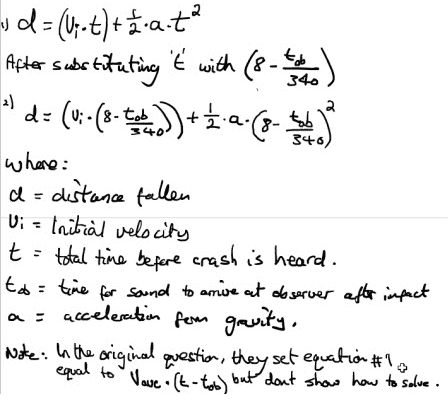 1) d = (Vi·t) + 1/2·a·t²
After substituting 't' with (8 - tob/340)
2) d = (Vi·(8 - tob/340)) + 1/2·a·(8 - tob/340)²
where:
d = distance fallen
Vi = Initial velocity
t = total time before crash is heard.
tob = time for sound to arrive at observer after impact
a = acceleration from gravity.
Note: In the original question, they set equation #1
equal to Vave·(t - tob) but dont show how to solve.